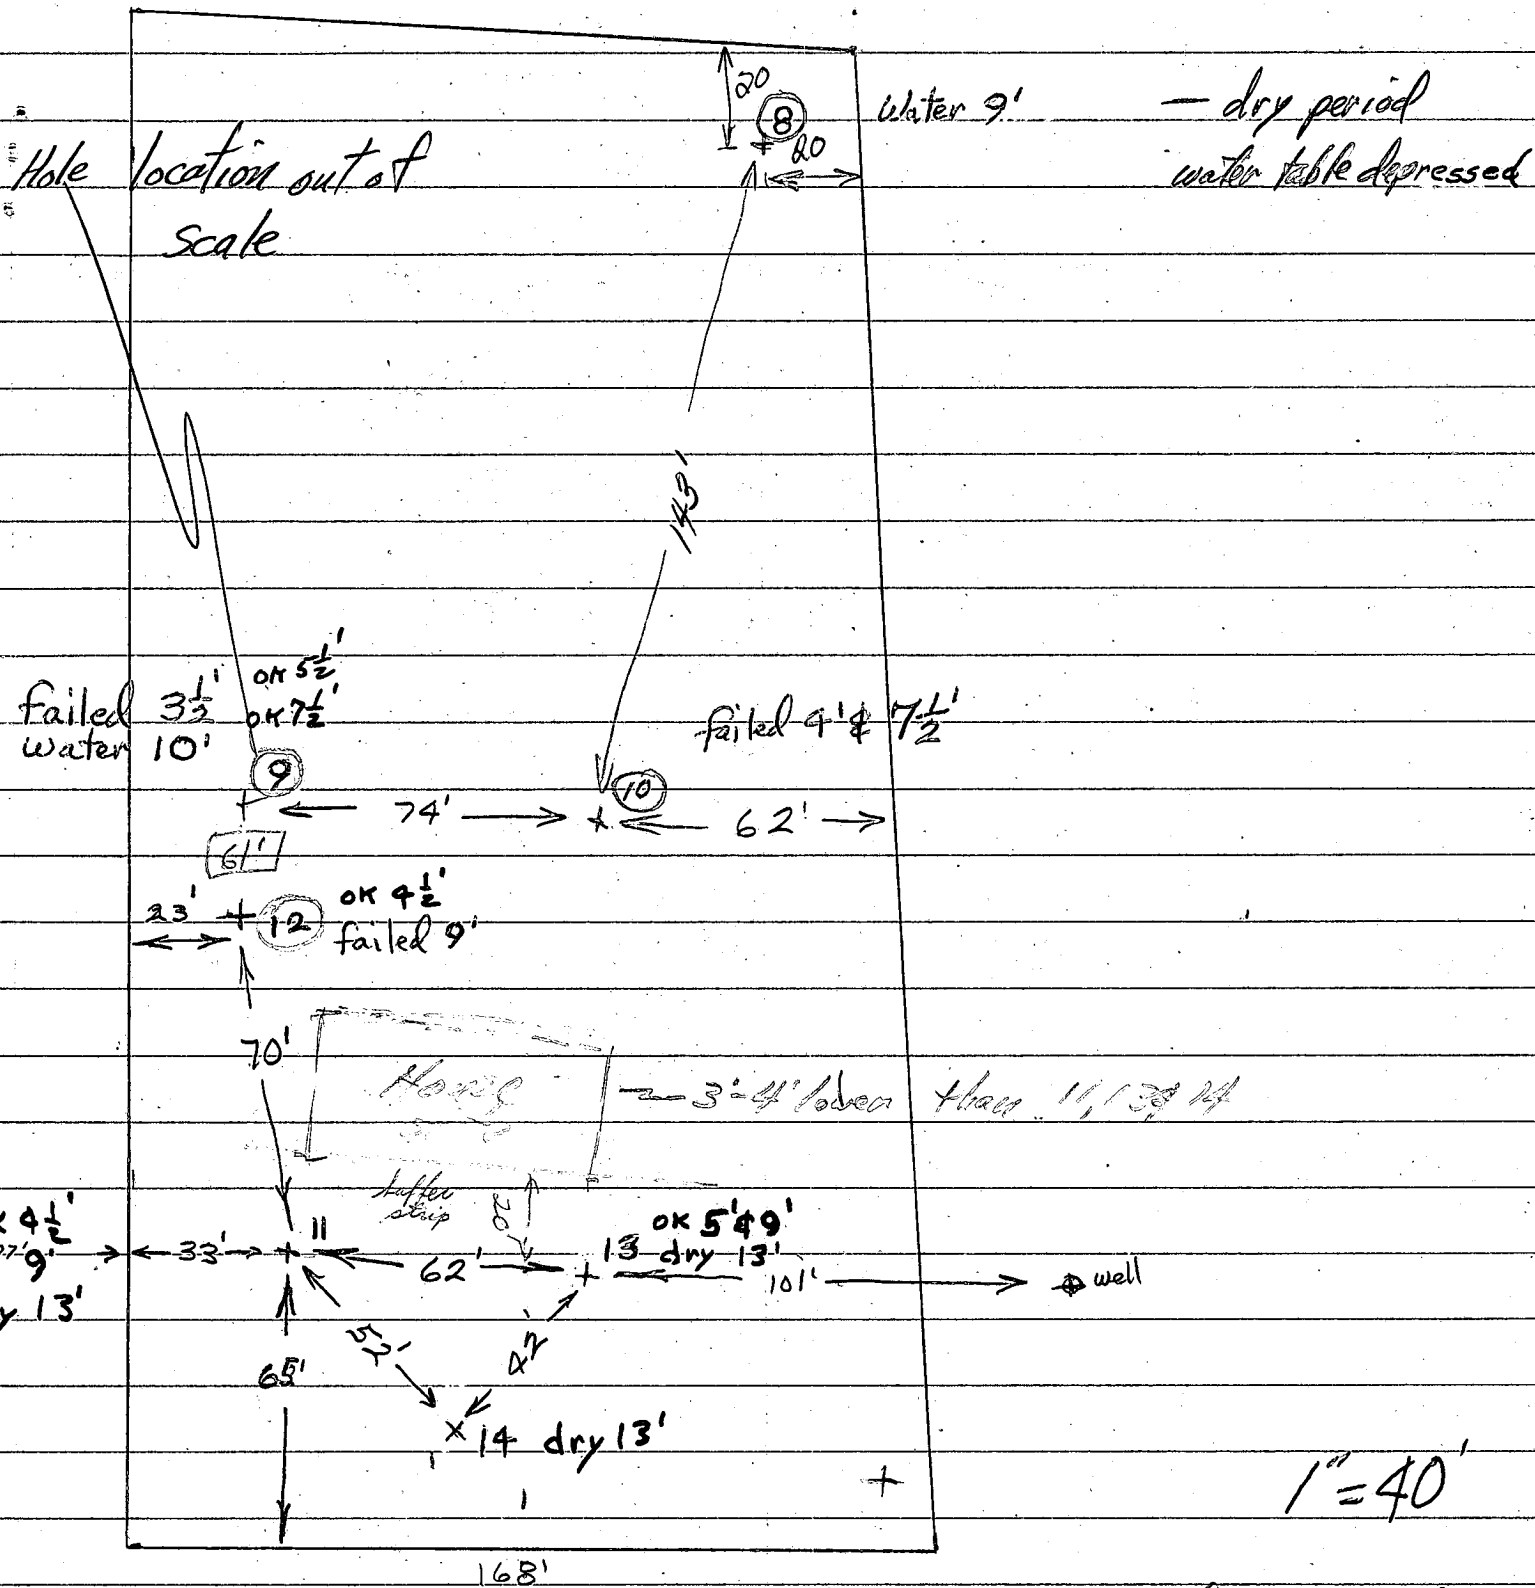 20
8
Water 9'
— dry period
20
water table depressed
Hole location out of
scale
143'
OK 5½'
failed 3½'
OK 7½'
water 10'
failed 4' & 7½'
9
10
74'
62'
61'
23'
12
OK 4½'
failed 9'
70'
House
3'-4' lower than 11, 13 & 14
buffer
strip
20'
4½'
9'
13'
33'
11
62'
13
OK 5' & 9'
dry 13'
101'
well
52'
42'
65'
14 dry 13'
1" = 40'
168'